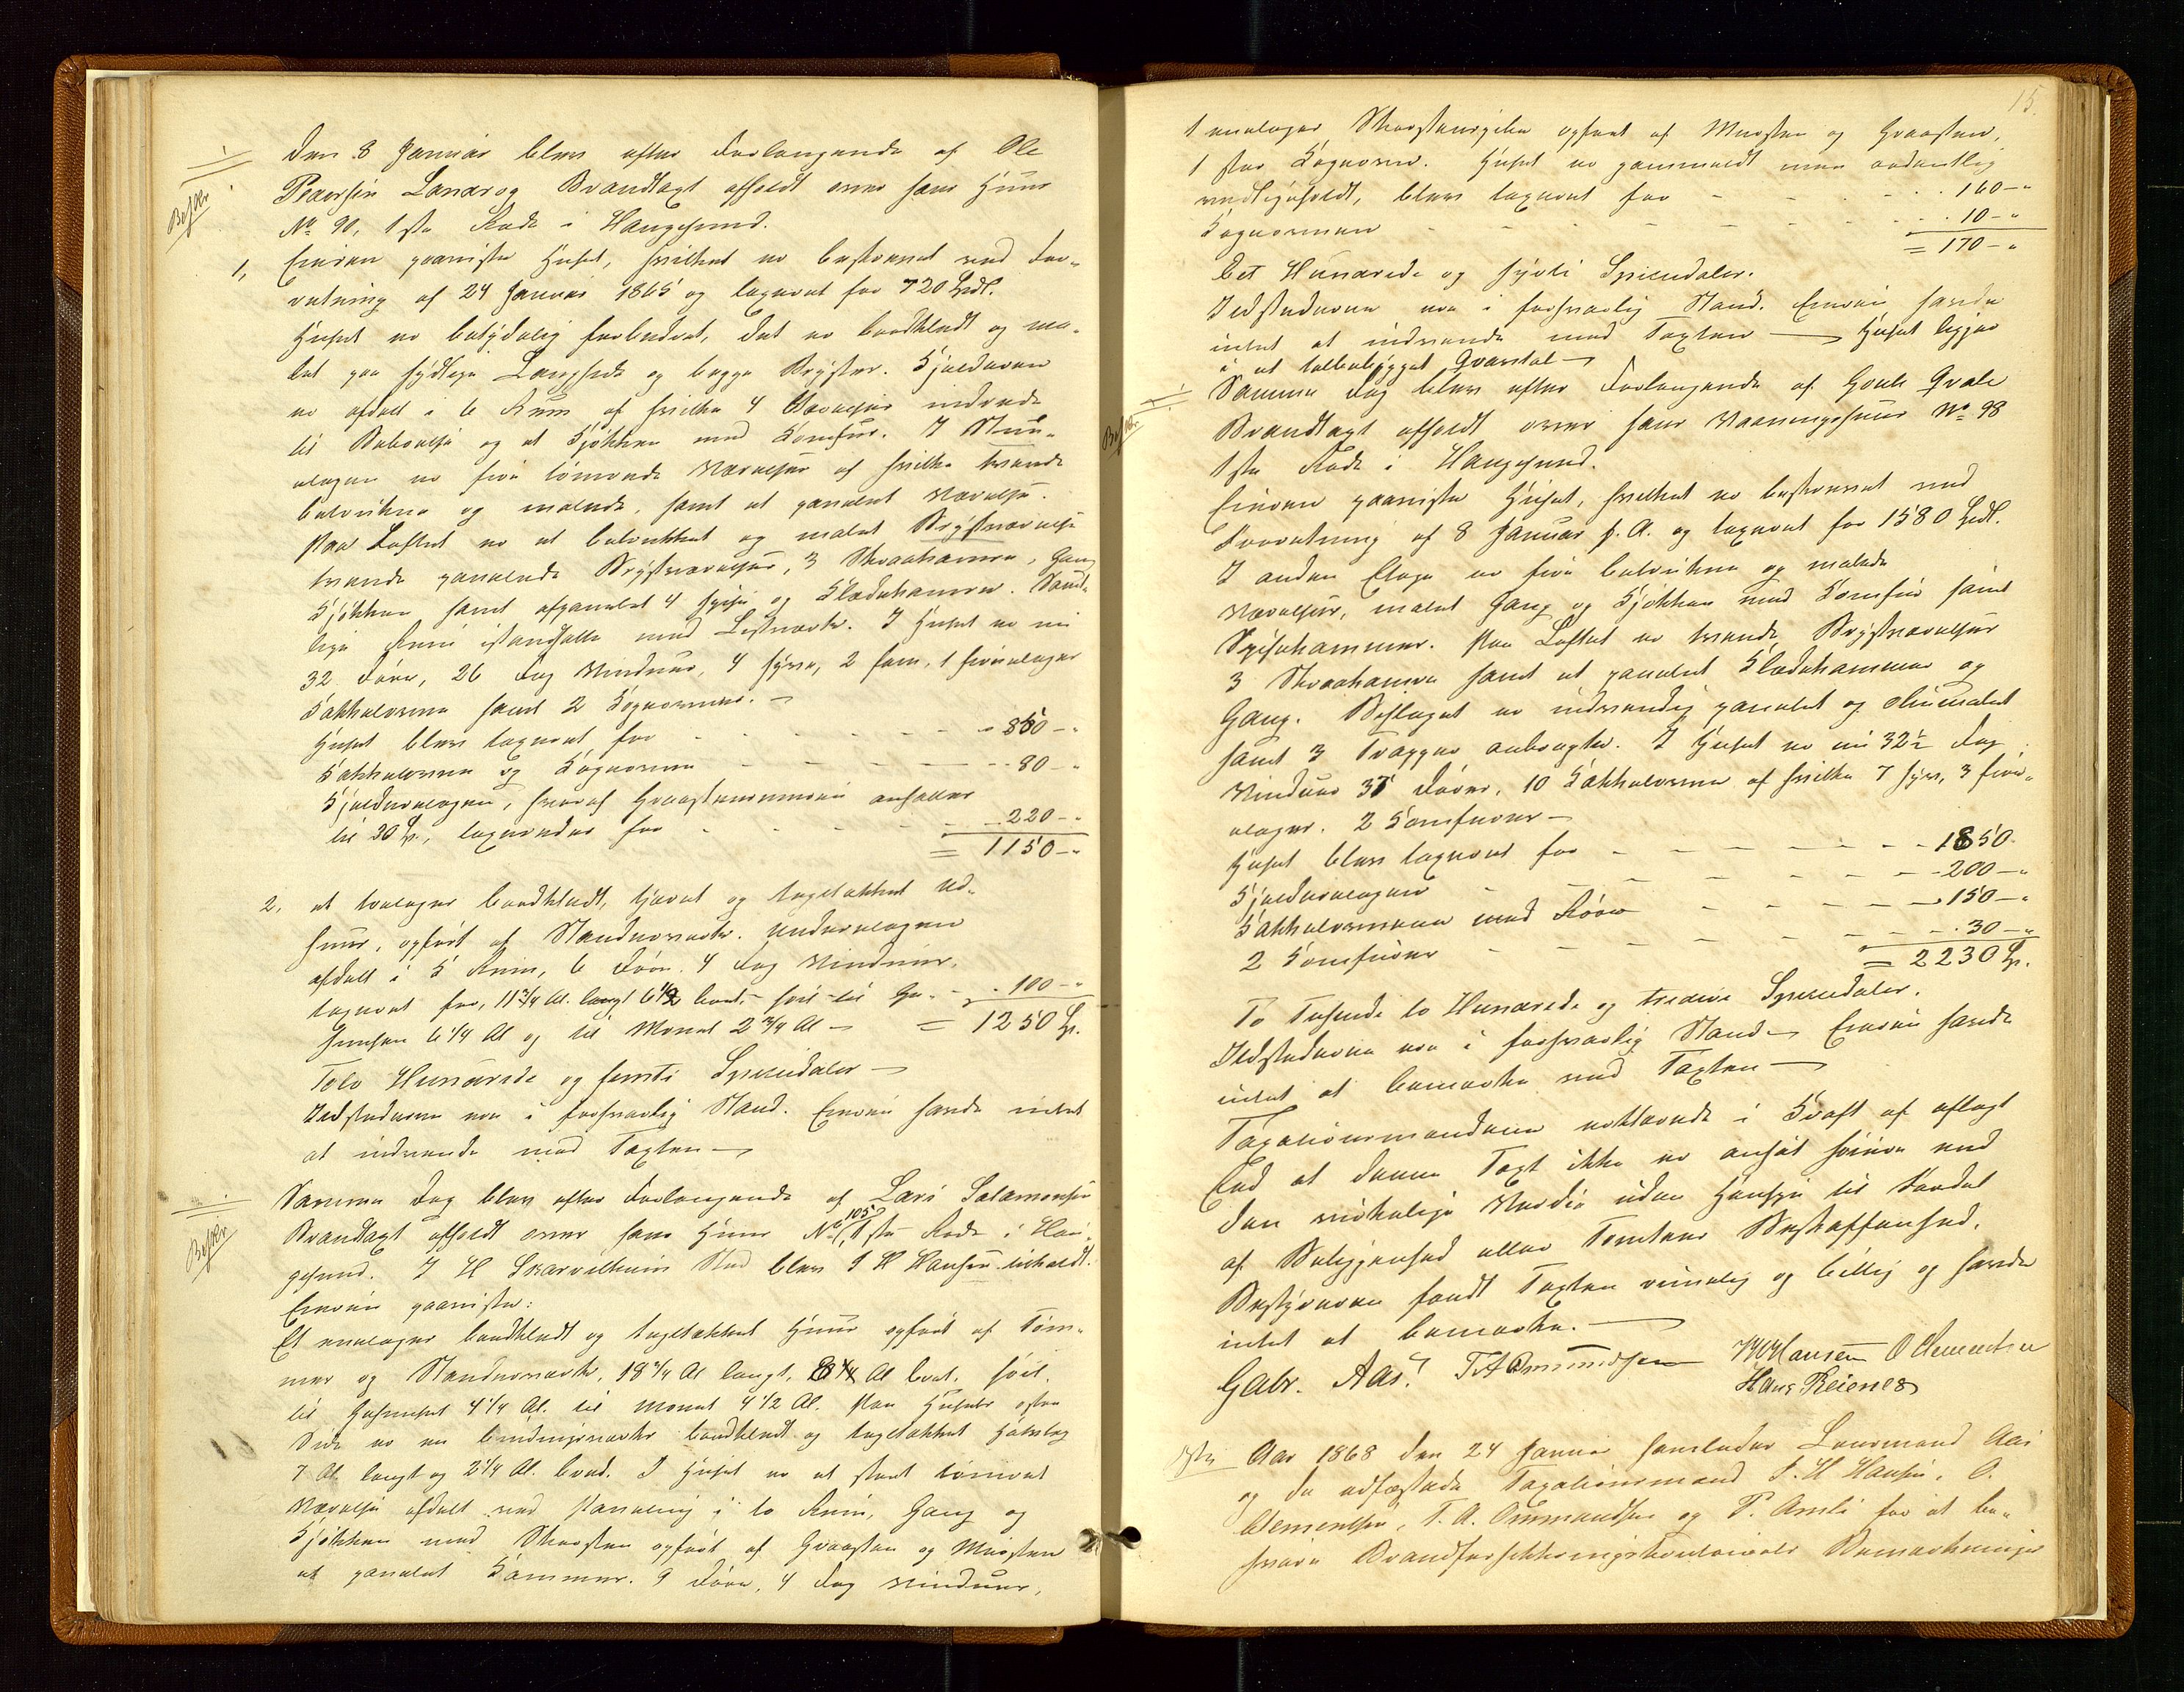 Den 8 Januar blev efter Forlangende af Ole
Beskr
Pedersen Lanærog Brandtaxt afholdt over hans Huus
No 90, 1ste Rode i Haugesund.
1, Eieren paaviste Huset, hvilket er beskrevet ved For-
retning af 24 Januar 1865 og taxeret for 720 Spdl.
Huset er betydelig forbedret, det er bordklædt og ma-
let paa sydlige Langside og begge Bryster. Kjelderen
er afdelt i 6 Rum af hvilke 4 Værelser indrede
til Beboelse og et Kjøkken med Komfur. I Stue-
etagen er fire tømrede Værelser af hvilke tvende
betrukne og malede, samt et panelet Værelse.
Paa Loftet er et betrukket og malet Brystværelse
tvende panelede Brystværelser, 3 Skraakamre, Gang
Kjøkken samt afpanelet 4 Spise og Klædekamre. Samt-
lige Rum istandsatte med Listværk. I Huset er nu
32 Døre, 26 Fag Vinduer, 4 fyre, 2 fem, 1 fireetages
Kakkelovne samt 2 Bageovner.
Huset blev taxeret for - - - 850 - "
Kakkelovne og Bageovne - - - 80 - "
Kjelderetagen, hvoraf Graastensmuren ansættes
til 30 Sp., taxeredes for - - - 220 - "
= 1150 - "
2, et toetages bordklædt, tjæret og tagtækket Ud-
huus, opført af Stænderværk. Underetagen
afdelt i 5 Rum, 6 Døre. 4 Fag Vinduer.
taxeret for, 11 3/4 Al. langt 6 1/2 bred, høit til Ge- - . 100 - "
simsen 6 1/4 Al og til Mønet 2 3/4 Al - = 1250 Sp.
Tolv Hundrede og femti Speciedaler
Ildstederne ere i forsvarlig Stand. Eieren havde intet
at indvende mod Taxten
Samme Dag blev efter Forlangende af Lars Salamonsen
Beskr
Brandtaxt afholdt over hans Huus No 105, 1ste Rode i Hau-
gesund. I H Svarvilhuins Sted blev I H Hansen indkaldt.
Eieren paaviste:
Et enetages bordklædt og tagtækket Huus opført af Tøm-
mer og Stænderværk. 18 3/4 Al langt, 8 1/4 Al bred, høit
til Gesimset 4 1/4 Al. til Mønet 4 1/2 Al. Paa Husets østre
Side er en bindingsværks bordklædt og tagtækket Halvtag
7 Al. langt og 2 1/4 Al. bred. I Huset er et stort tømret
Værelse afdelt ved Paneling i to Rum, Gang og
Kjøkken med Skorsten opført af Graasten og Mursten
et panelet Kammer. 9 Døre, 4 Fag Vinduer,
15
1 enetages Skorstenspibe opført af Mursten og Graasten,
1 stor Bageovn. Huset er gammeldt men ordentlig
vedligeholdt, blev taxeret for - - - 160 - "
Bageovnen - - - 10 - "
= 170 - "
Eet Hundrede og sytti Speciedaler.
Ildstederne ere i forsvarlig Stand. Eieren havde
intet at indvende mod Taxten - Huset ligger
i et tætbebygget Qvartal -
Samme Dag blev efter Forlangende af Gouli Qvale
Beskr.
Brandtaxt afholdt over hans Vaaningshuus No 98
1ste Rode i Haugesund.
Eieren paaviste Huset, hvilket er beskrevet ved
Forretning af 8 Januar f. A. og taxeret for 1580 Spdl.
I anden Etage er fire betrukne og malede
Værelser, malet Gang og Kjøkken med Komfur samt
Spisekammer. Paa Loftet er tvende Brystværelser
3 Skraakamre samt et panelet Klædekammer og
Gang. Beslaget er indvendig panelet og oliemalet
samt 3 Trapper anbragte. I Huset er nu 32 1/2 Fag
Vinduer 35 Døre, 10 Kakkelovne af hvilke 7 fyre, 3 fire-
etages. 2 Komfurer -
Huset blev taxeret for - - - 1850.
Kjelderetagen - - - 200 - "
Kakkelovnene med Røre - - - 150 - "
2 Komfurer - - - 30 - "
= 2230 Sp.
To Tusende to Hundrede og tredive Speciedaler.
Ildstederne ere i forsvarlig Stand - Eieren havde
intet at bemærke ved Taxten -
Taxationsmændene erklærede i Kraft af aflagt
Eed at denne Taxt ikke er ansat høiere end
den virkelige Værdie uden Hensyn til Fordel
af Beliggenhed eller Tomtens Beskaffenhed.
Bestyreren fandt Taxten rimelig og billig og havde
intet at bemærke.
Gabr. Aas. T A Ommundsen IHHansen O Clementsen
Hans Reienes
Aar 1868 den 24 Januar samledes Lensmand Aas
og de edfæstede Taxationsmænd I. H Hansen, O.
Clementsen, T. A. Ommundsen og P. Amli for at be-
svare Brandforsikkringskontoirets Bemærkninger